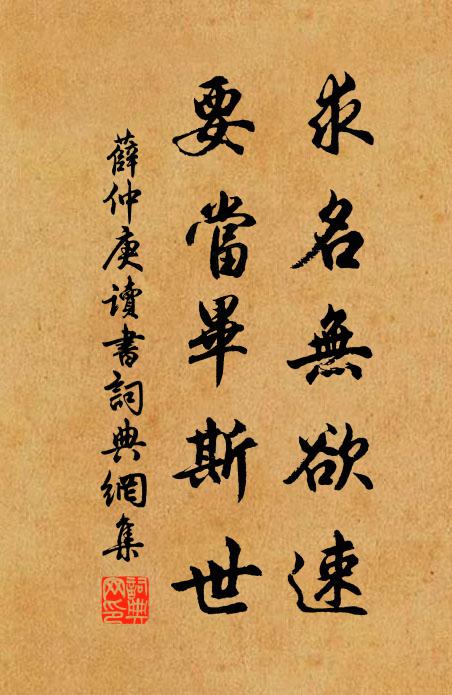 求名無欲速
要當畢斯世
薛仲庚讀書詞典網集
詞典網印